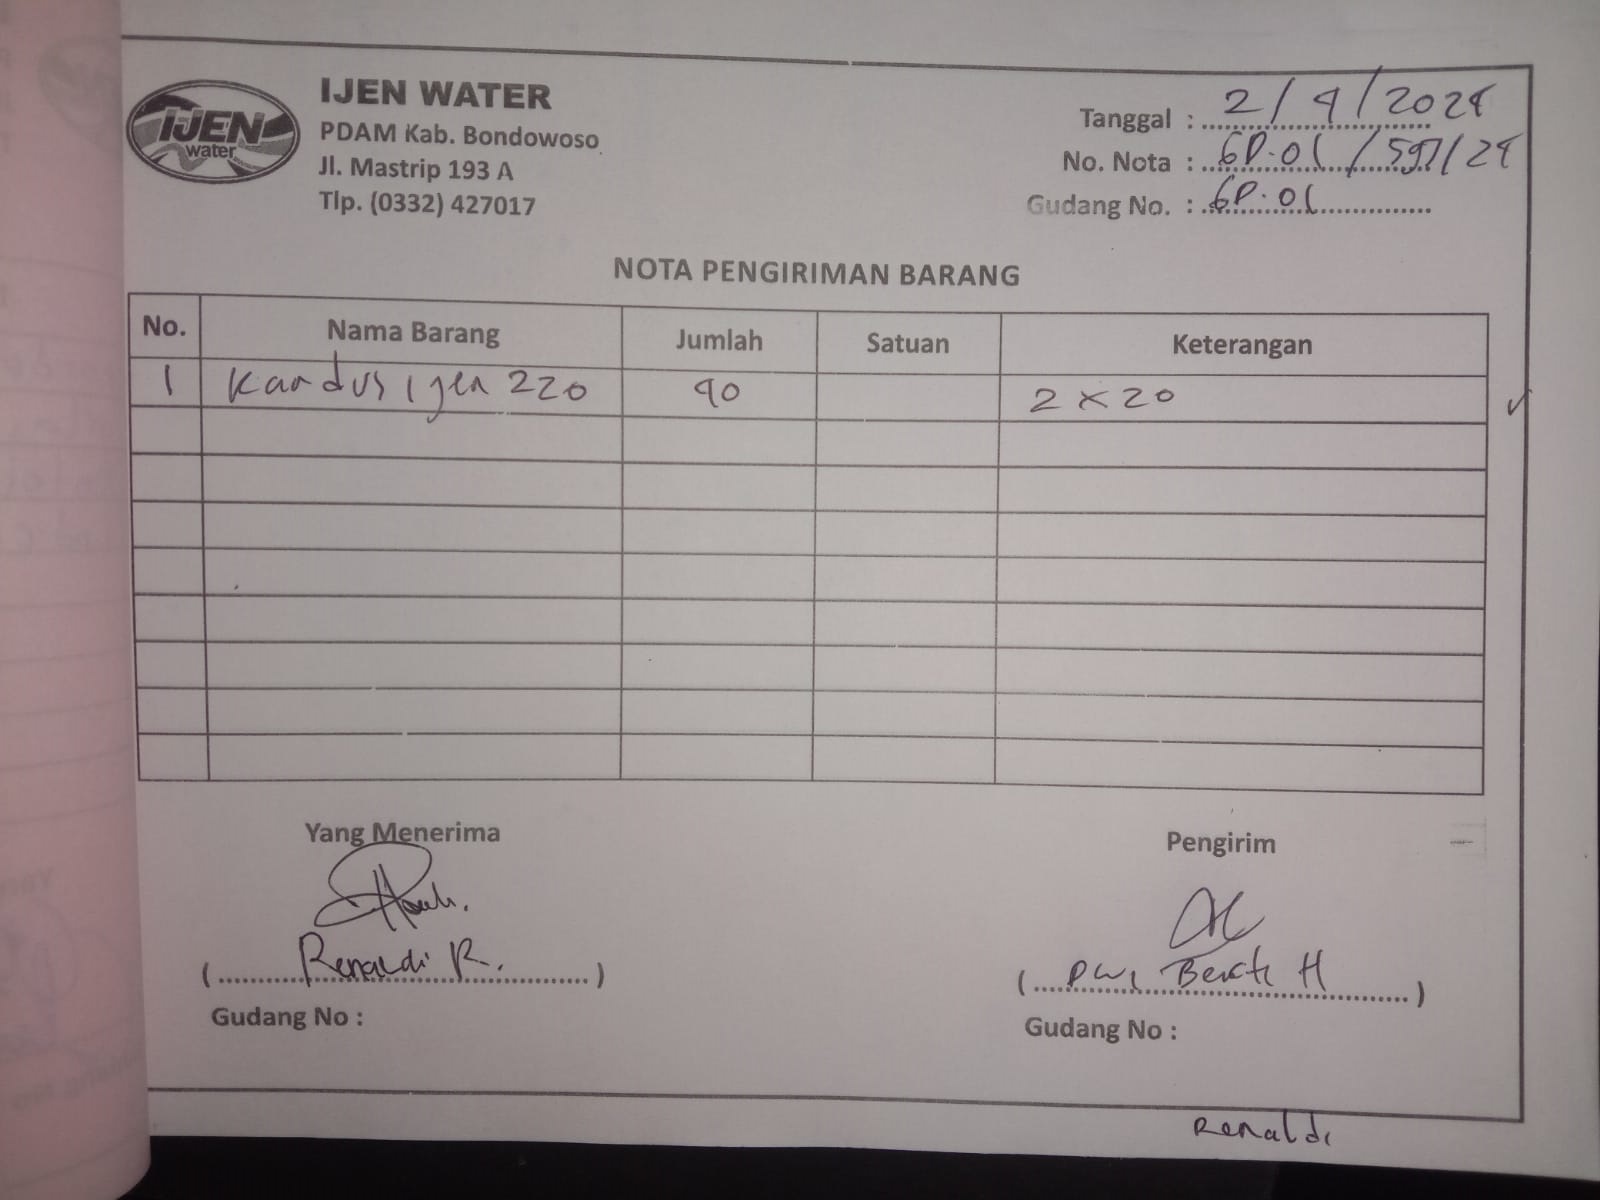 IJEN
water
IJEN WATER
PDAM Kab. Bondowoso
Jl. Mastrip 193 A
Tlp. (0332) 427017
Tanggal : 2/4/2024
No. Nota : GP.01 / 597/24
Gudang No. : GP.01
NOTA PENGIRIMAN BARANG
No. Nama Barang Jumlah Satuan Keterangan
1 Kardus Ijen 220 40 2 x 20
Yang Menerima
(Renaldi R.)
Gudang No :
Pengirim
(Dwi H)
Gudang No :
Renaldi